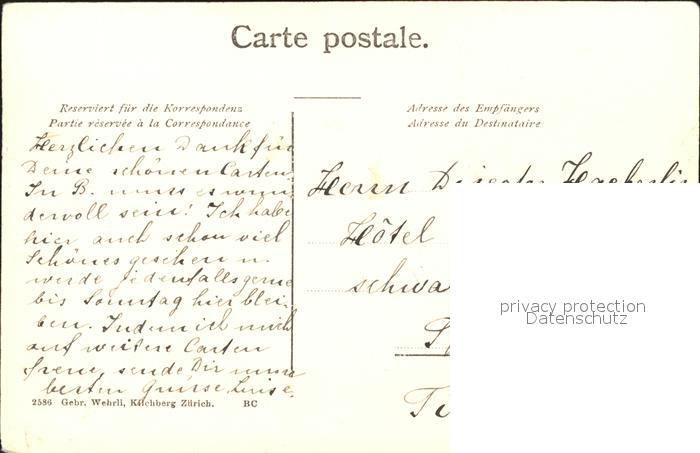 Carte postale.
Reserviert für die Korrespondenz
Partie réservée à la Correspondance
Adresse des Empfängers
Adresse du Destinataire
Herzlichen Dank für
Deine schönen Carten.
In B. muss es wun-
dervoll sein! Ich habe
hier auch schon viel
Schönes gesehen u.
werde jedenfalls gerne
bis Sonntag hier blei-
ben. Indem ich mich
auf weitere Carten
freue, sende Dir
besten Grüsse, Luise.
Herrn Director Haeberlin
Hôtel
schwa
privacy protection
Datenschutz
2586 Gebr. Wehrli, Kilchberg Zürich. BC